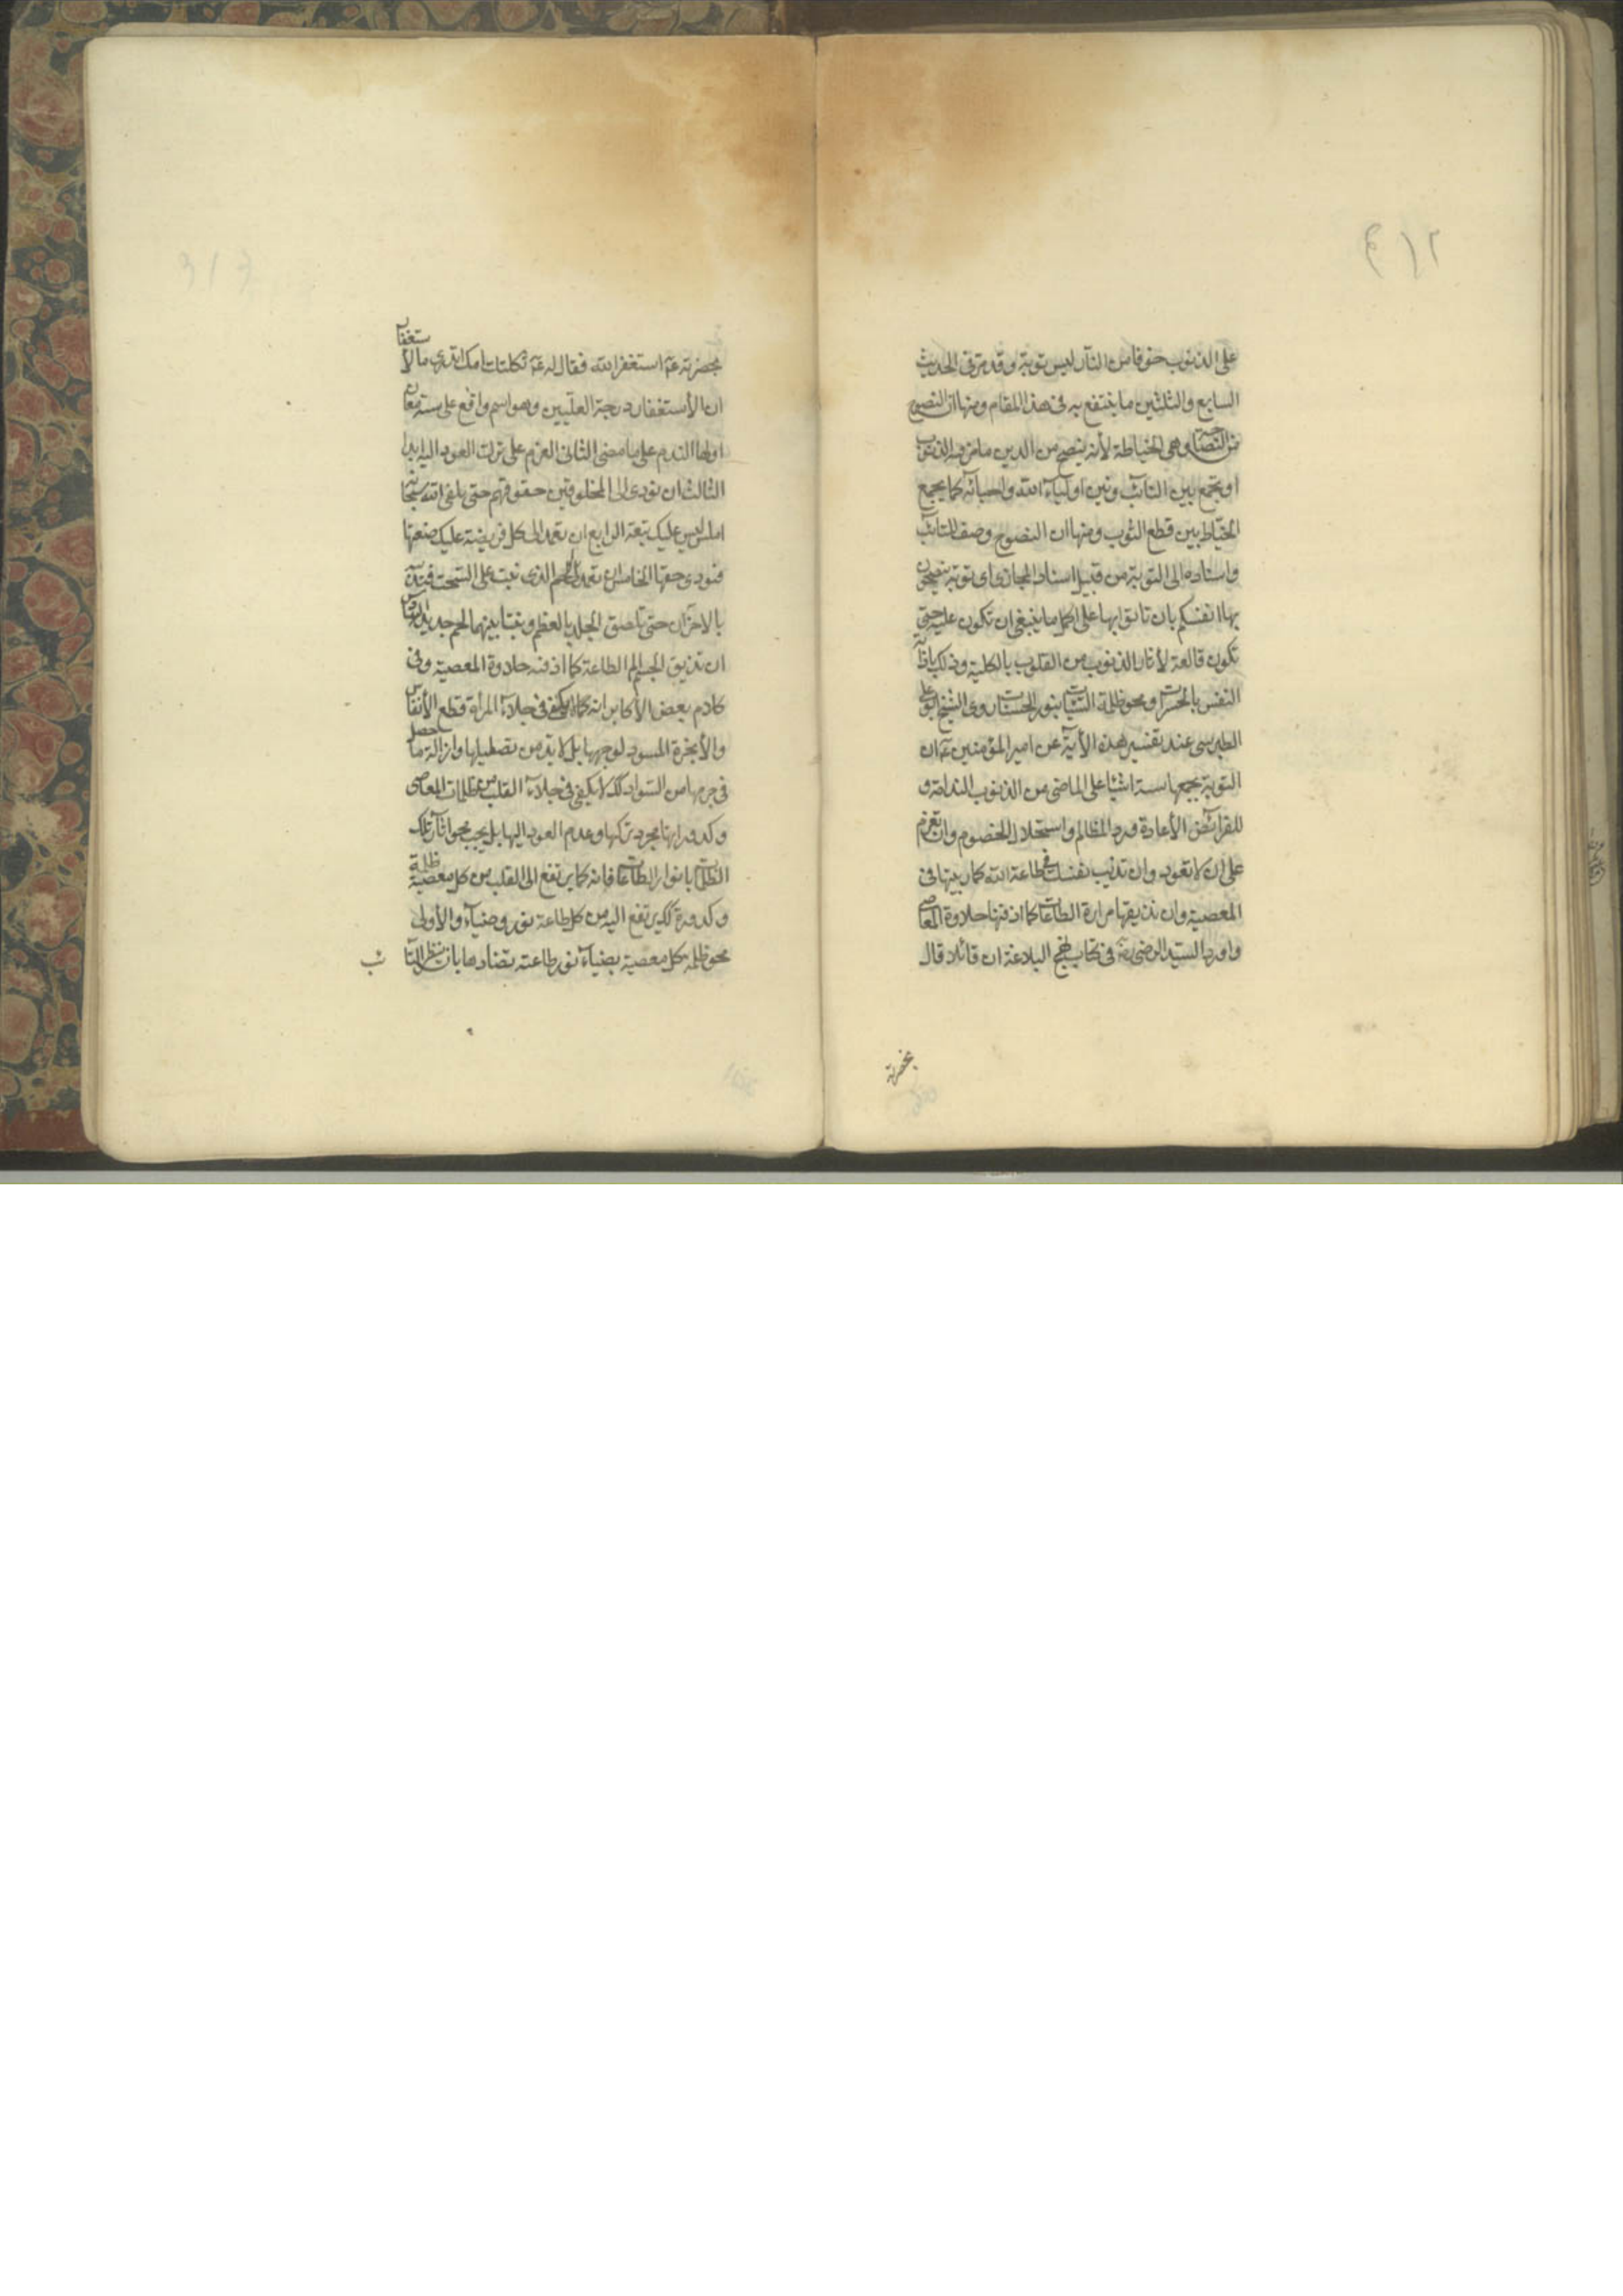 ٣١٢
على الذنوب خوفا من النار ليس توبة وقد مر في الحديث
السابع والثلثين ما ينتفع به في هذا المقام ومنها ان النصوح
من النصاحة وهي الخياطة لأنه ينصح من الدين ما مزقه الذنوب
او يجمع بين التائب وبين اولياء الله واحبائه كما يجمع
الخياط بين قطع الثوب ومنها ان النصوح وصف للتائب
واسناده الى التوبة من قبيل اسناد المجازي اى توبة ينصحون
بها انفسكم بان تاتوا بها على اكمل ما ينبغي ان تكون عليه حتى
تكون قالعة لأثار الذنوب من القلوب بالكلية وذلك باذابة
النفس بالحسرات ومحو ظلمة السيئات بنور الحسنات روى الشيخ ابو على
الطبرسى عند تفسير هذه الأية عن امير المؤمنين ع ان
التوبة يجمعها ستة اشياء على الماضى من الذنوب الندامة و
للفرائض الأعادة ورد المظالم واستحلال الخصوم وان تعزم
على ان لا تعود وان تذيب نفسك فى طاعة الله كما ربيتها فى
المعصية وان تذيقها مرارة الطاعات كما اذقتها حلاوة المعاصى
واورد السيد الرضى رض فى كتاب نهج البلاغة ان قائلا قال
بحضرته
بحضرته ع استغفر الله فقال له ع ثكلتك امك اتدرى ما الأستغفار
ان الأستغفار درجة العليين وهو اسم واقع على ستة معان
اولها الندم على ما مضى الثانى العزم على ترك العود اليه ابدا
الثالث ان تؤدى الى المخلوقين حقوقهم حتى تلقى الله سبحانه
املس ليس عليك تبعة الرابع ان تعمد الى كل فريضة عليك ضيعتها
فتودى حقها الخامس ان تعمد الى اللحم الذى نبت على السحت فتذيبه
بالاحزان حتى تلصق الجلد بالعظم وينشا بينهما لحم جديد السادس
ان تذيق الجسم الم الطاعة كما اذقته حلاوة المعصية وفى
كلام بعض الأكابر انه كما لا يكفى فى جلاء المرأة قطع الأنفاس
والأبخرة المسود لوجهها بل لا بد من تصقيلها وازالة ما حصل
فى جرمها من السواد كك لا يكفى فى جلاء القلب من ظلمات المعاصى
وكدوراتها مجرد تركها وعدم العود اليها بل يجب محو اثار تلك
الظلمات بانوار الطاعات فانه كما يرتفع الى القلب من كل معصية ظلمة
وكدورة كك يرتفع اليه من كل طاعة نور وضياء والأولى
محو ظلمة كل معصية بضياء نور طاعته تضادها بان ينظر التائب